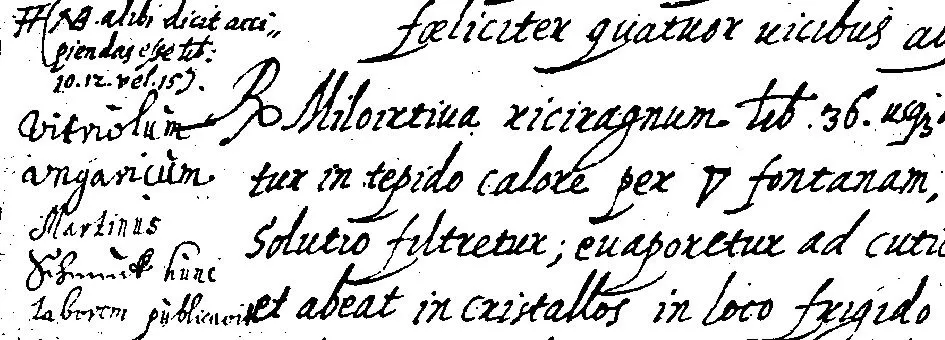 (NB alibi dicit acci„
piendas esse lib:
10. 12. vel. 15).
Vitriolum
ungaricum
Martinus
Schmuck hunc
Laborem publicavit
fœliciter quatuor vicibus
℞ Miloirtiva riciragnum lib. 36.
tur in tepido calore per ▽ fontanam,
Solutio filtretur; evaporetur ad
et abeat in cristallos in loco frigido